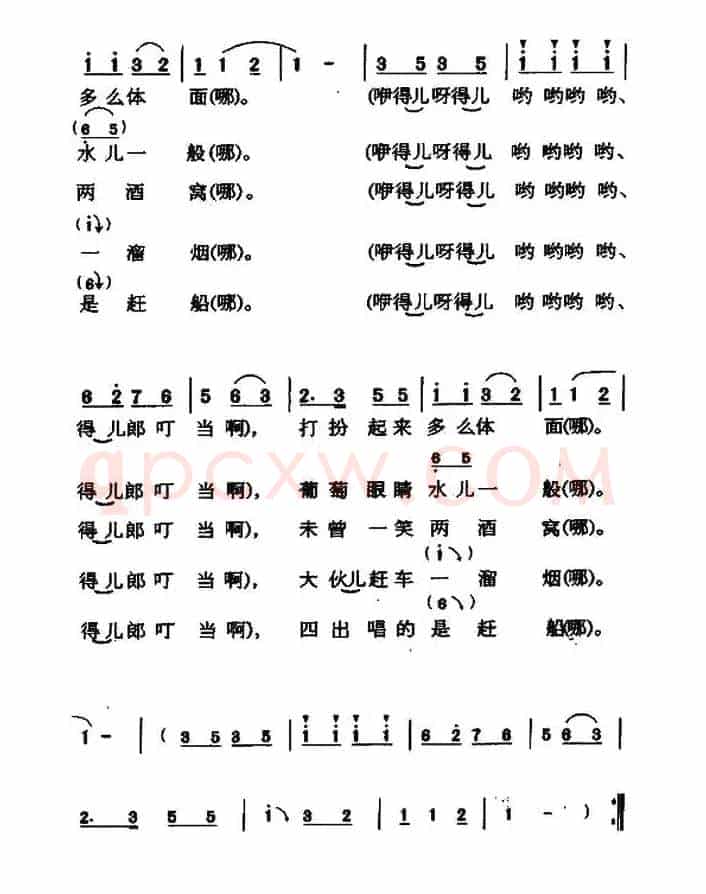 i i 3 2 | 1 1 2 | 1 - | 3 5 3 5 | i i i i |
多么体 面(哪)。 (咿得儿呀得儿 哟 哟哟 哟、
(6 5)
水儿一 般(哪)。 (咿得儿呀得儿 哟 哟哟 哟、
两 酒 窝(哪)。 (咿得儿呀得儿 哟 哟哟 哟、
(i↘)
一 溜 烟(哪)。 (咿得儿呀得儿 哟 哟哟 哟、
(6↘)
是 赶 船(哪)。 (咿得儿呀得儿 哟 哟哟 哟、
6 2 7 6 | 5 6 3 | 2. 3 5 5 | i i 3 2 | 1 1 2 |
得儿郎 叮 当 啊), 打 扮 起来 多么体 面(哪)。
6 5
得儿郎 叮 当 啊), 葡 萄 眼 睛 水儿一 般(哪)。
得儿郎 叮 当 啊), 未 曾 一 笑 两 酒 窝(哪)。
(i↘)
得儿郎 叮 当 啊), 大 伙儿赶车 一 溜 烟(哪)。
(6↘)
得儿郎 叮 当 啊), 四 出 唱 的 是 赶 船(哪)。
1 - | ( 3 5 3 5 | i i i i | 6 2 7 6 | 5 6 3 |
2. 3 5 5 | i↘ 3 2 | 1 1 2 | 1 - ) :|
qpcxw.COM